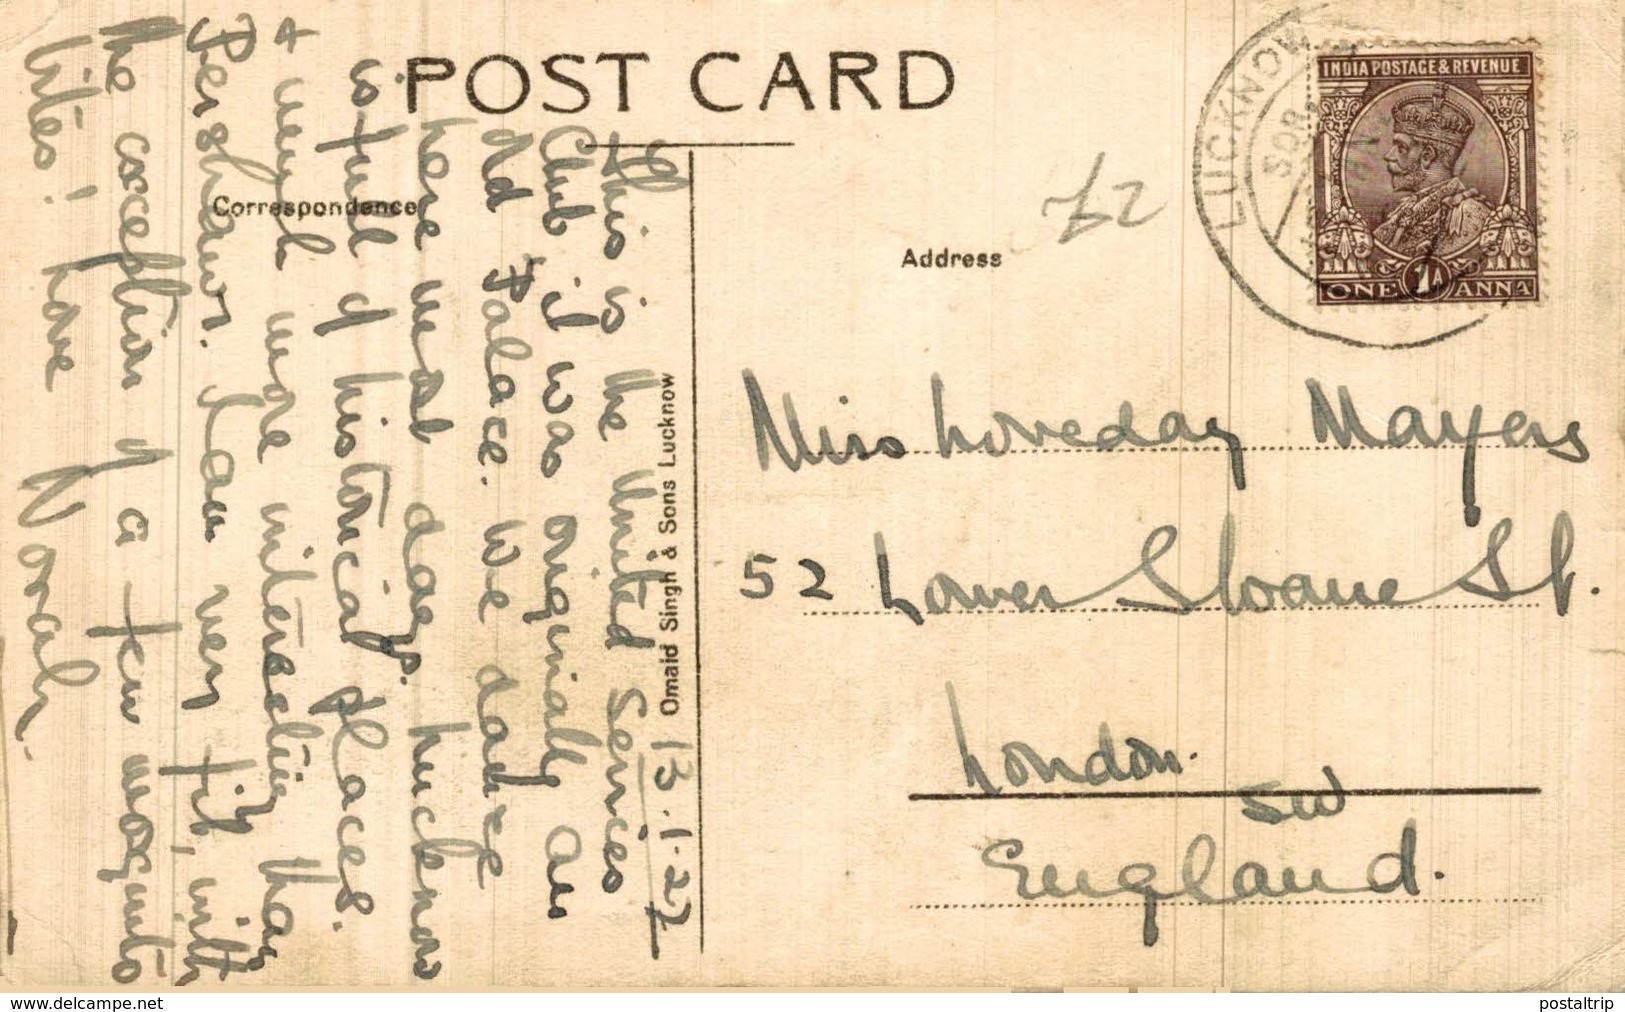 POST CARD
Correspondence
Address
£2
INDIA POSTAGE & REVENUE
ONE 1A ANNA
LUCKNOW
Omaid Singh & Sons Lucknow
13.1.27
This is the United Services
Club, it was originally an
old Palace. We dance
here most days. Lucknow
is full of historical places.
& much more interesting than
Peshawr. I am very fit, with
the exception of a few mosquito
bites! love
Norah.
Miss Loveday Mayers
52 Lower Sloane St.
London.
SW
England.
www.delcampe.net
postaltrip